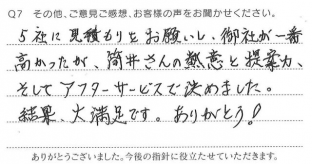 Q7 その他、ご意見ご感想、お客様の声をお聞かせください。
5社に見積もりをお願いし、御社が一番
高かったが、筒井さんの熱意と提案力、
そしてアフターサービスで決めました。
結果、大満足です。ありがとう!
ありがとうございました。今後の指針に役立たせていただきます。